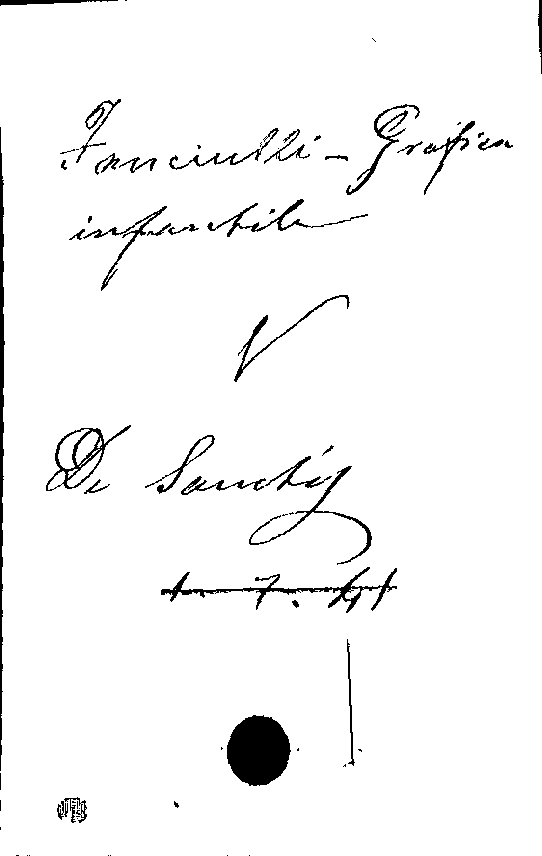 Fanciulli - Grafica
infantile
V
De Sanctis
1. 7. 41